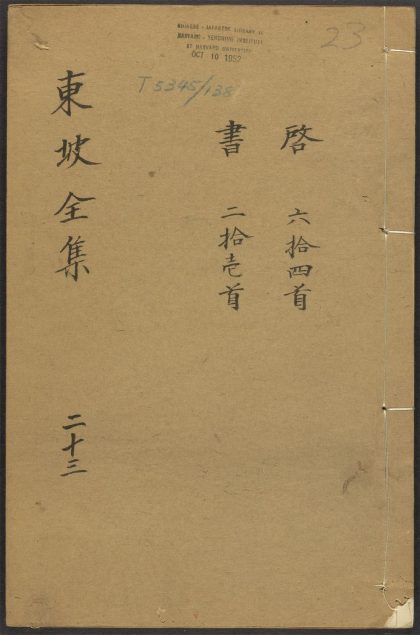 CHINESE - JAPANESE LIBRARY OF
HARVARD - YENCHING INSTITUTE
AT HARVARD UNIVERSITY
OCT 10 1952
23
T 5345/138
啓 六拾四首
書 二拾壱首
東坡全集 二十三